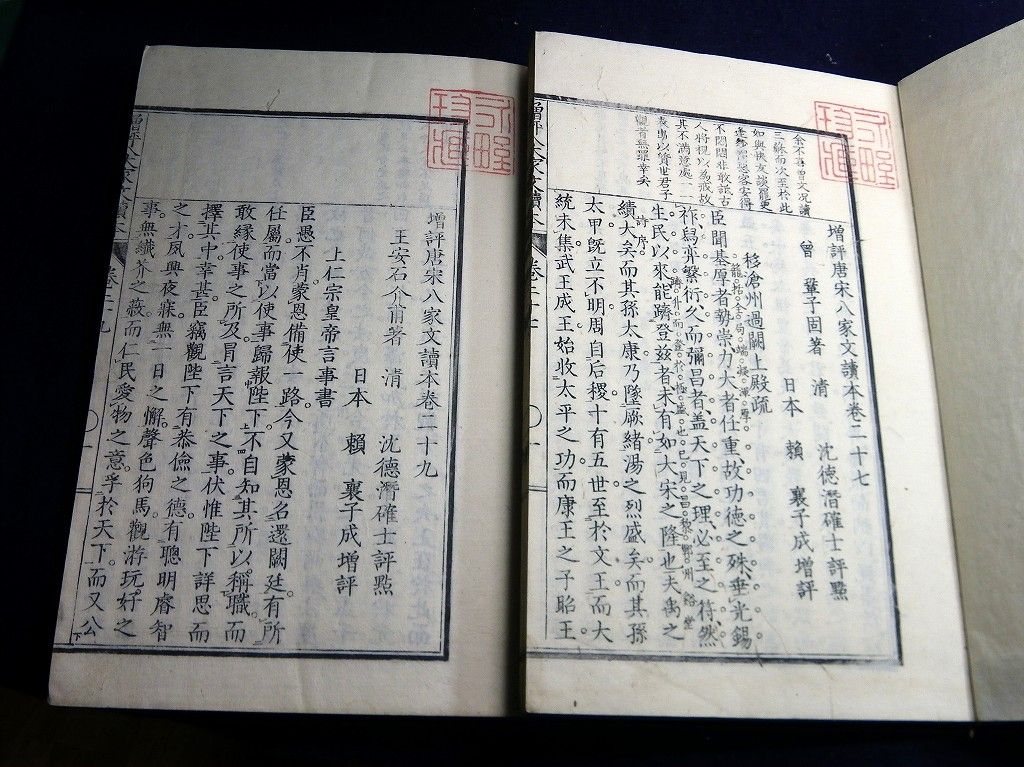 增評唐宋八家文讀本卷二十七
曾 鞏子固著 清 沈德潛確士評點
日本 賴 襄子成增評
移滄州過闕上殿疏
籠括全局端凝渾厚
臣聞基厚者勢崇力大者任重故功德之殊垂光錫
祚舄奕繁衍久而彌昌者蓋天下之理必至之符然
生民以來能躋登茲者未有如大宋之隆也夫禹之
詩序
績大矣而其孫太康乃墜厥緒湯之烈盛矣而其孫
太甲旣立不明周自后稷十有五世至於文王而大
統未集武王成王始收太平之功而康王之子昭王
余不喜曾文況讀
三蘇而次至於此
如與快友談罷更
客安得
不悶悶非敢詆古
人將視以為戒故
其不滿意處一一
表出以質世君子
觀者無罪幸矣
增評八大家文讀本
卷二十七
增評唐宋八家文讀本卷二十九
王安石介甫著 清 沈德潛確士評點
日本 賴 襄子成增評
上仁宗皇帝言事書
臣愚不肖。蒙恩備使一路。今又蒙恩召還闕廷。有所
任屬。而當以使事歸報陛下。不自知其所以稱職。而
敢緣使事之所及。冒言天下之事。伏惟陛下詳思而
擇其中。幸甚。臣竊觀陛下有恭儉之德。有聰明睿智
之才。夙興夜寐。無一日之懈。聲色狗馬。觀游玩好之
事。無纖芥之蔽。而仁民愛物之意。孚於天下。而又公
增評八大家文讀本
卷二十九